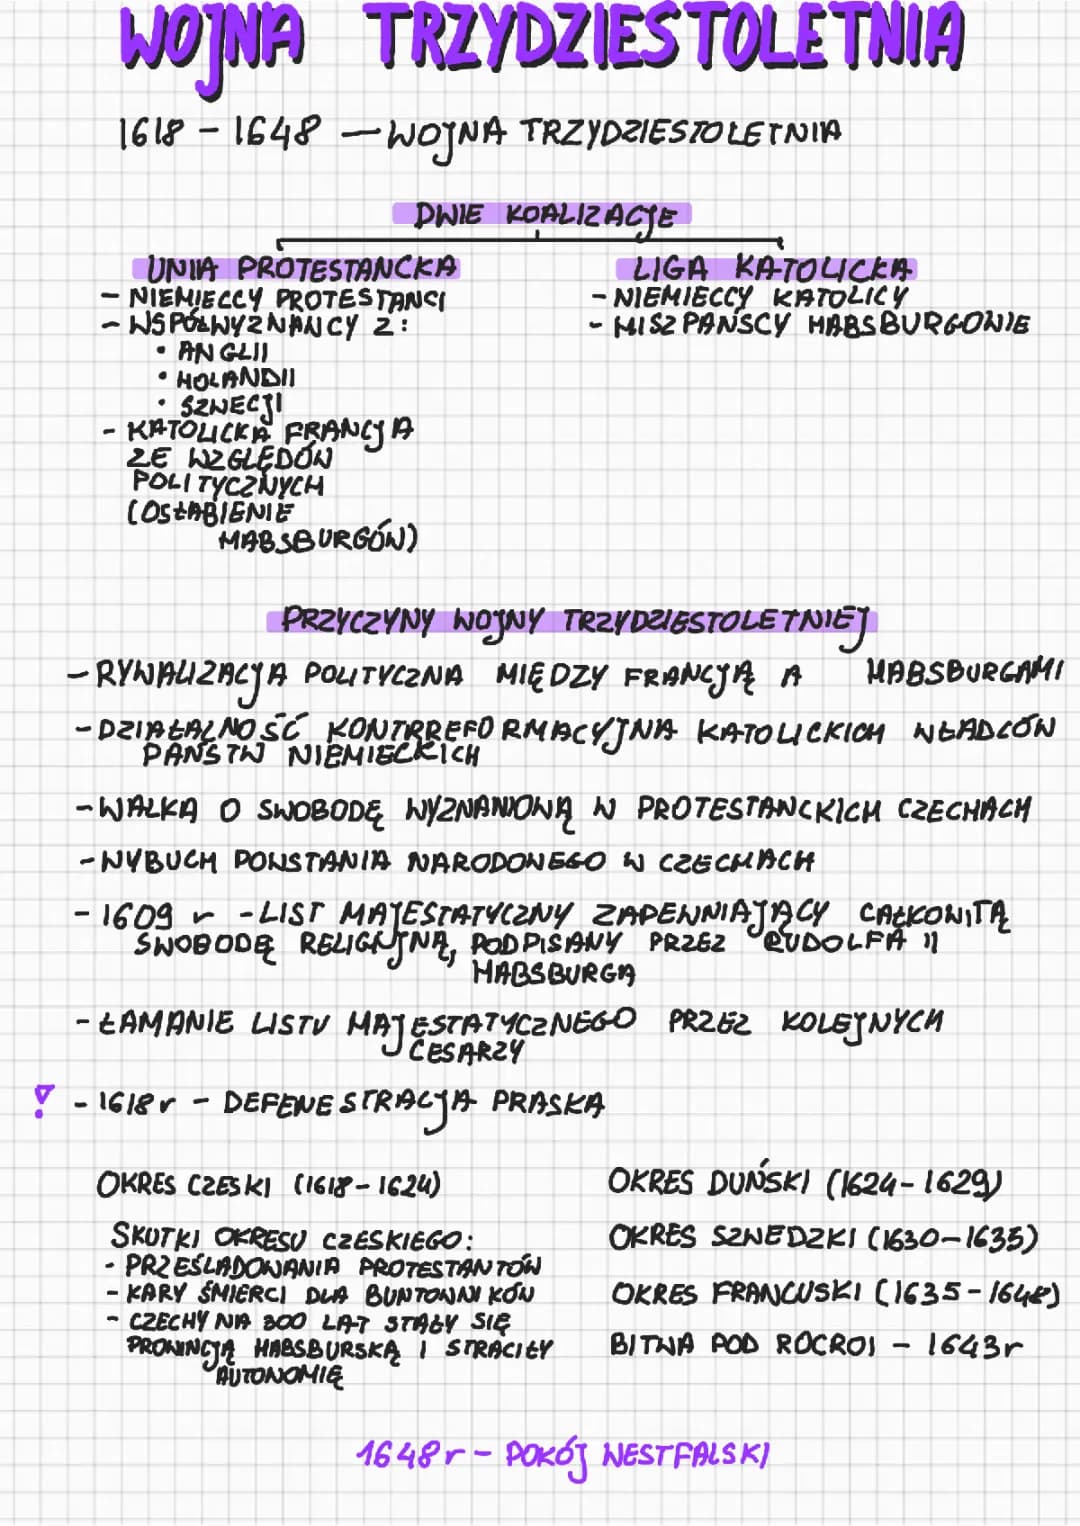 WOJNA TRZYDZIESTOLETNIA
1618 - 1648 — WOJNA TRZYDZIESTOLETNIA
DWIE KOALIZACJE
UNIA PROTESTANCKA
- NIEMIECCY PROTESTANCI
- WSPÓŁWYZNAWCY Z:
• ANGLII
• HOLANDII
• SZWECJI
- KATOLICKA FRANCJA
ZE WZGLĘDÓW
POLITYCZNYCH
(OSŁABIENIE
HABSBURGÓW)
LIGA KATOLICKA
- NIEMIECCY KATOLICY
- HISZPAŃSCY HABSBURGOWIE
PRZYCZYNY WOJNY TRZYDZIESTOLETNIEJ
- RYWALIZACJA POLITYCZNA MIĘDZY FRANCJĄ A HABSBURGAMI
- DZIAŁALNOŚĆ KONTRREFORMACYJNA KATOLICKICH WŁADCÓW
PAŃSTW NIEMIECKICH
- WALKA O SWOBODĘ WYZNANIOWĄ W PROTESTANCKICH CZECHACH
- WYBUCH POWSTANIA NARODOWEGO W CZECHACH
- 1609 r - LIST MAJESTATYCZNY ZAPEWNIAJĄCY CAŁKOWITĄ
SWOBODĘ RELIGIJNĄ, PODPISANY PRZEZ RUDOLFA II
HABSBURGA
- ŁAMANIE LISTU MAJESTATYCZNEGO PRZEZ KOLEJNYCH
CESARZY
! - 1618 r - DEFENESTRACJA PRASKA
OKRES CZESKI (1618 - 1624)
SKUTKI OKRESU CZESKIEGO:
- PRZEŚLADOWANIA PROTESTANTÓW
- KARY ŚMIERCI DLA BUNTOWNIKÓW
- CZECHY NA 300 LAT STAŁY SIĘ
PROWINCJĄ HABSBURSKĄ I STRACIŁY
AUTONOMIĘ
OKRES DUŃSKI (1624 - 1629)
OKRES SZWEDZKI (1630 - 1635)
OKRES FRANCUSKI (1635 - 1648)
BITWA POD ROCROI - 1643 r
1648 r - POKÓJ WESTFALSKI